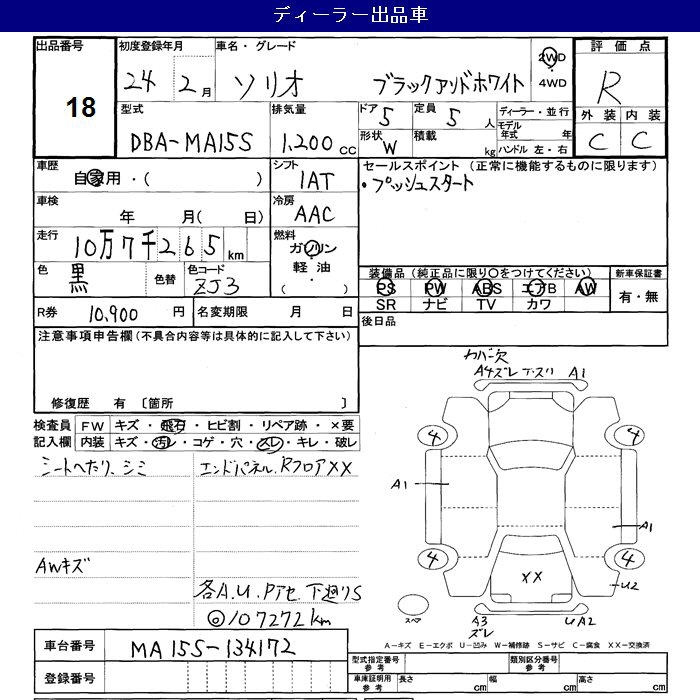 ディーラー出品車
出品番号 初度登録年月 車名・グレード 2WD 4WD 評価点
18 24 2月 ソリオ ブラックアンドホワイト R
型式 排気量 ドア 5 定員 5人 ディーラー・並行 外装 内装
DBA-MA15S 1,200cc 形状 W 積載 kg モデル年式 年 ハンドル 左・右 C C
車歴 自家用・( ) シフト 1AT セールスポイント(正常に機能するものに限ります)
・プッシュスタート
車検 年 月( 日) 冷房 AAC
走行 10万7千265km 燃料 ガソリン・軽油・( )
色 黒 色替 色コード ZJ3
装備品(純正品に限り○をつけてください) 新車保証書
PS PW ABS エアB AW 有・無
SR ナビ TV カワ
R券 10,900円 名変期限 月 日 後日品
注意事項申告欄(不具合内容等は具体的に記入して下さい)
修復歴 有〔箇所 〕
検査員記入欄 FW キズ・飛石・ヒビ割・リペア跡・×要
内装 キズ・汚レ・コゲ・穴・スレ・キレ・破レ
シートヘたり、シミ エンドパネル、RフロアXX
AWキズ
各A.U.Pアセ 下廻りS
◎107272km
カバー欠
A4ズレ 下スリ A1
4 4
A1 A1
4 4
XX U2
スペア A3 ズレ UA2
A-キズ E-エクボ U-凹み W-補修跡 S-サビ C-腐食 XX-交換済
車台番号 MA15S-134172
登録番号
型式指定番号 参考 類別区分番号 参考
車庫証明用 参考 長さ cm 幅 cm 高さ cm